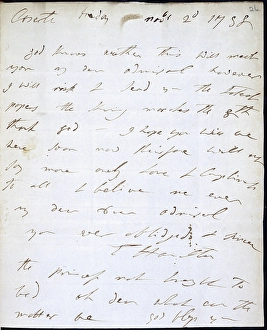 Caserta Friday Nov 2d 1798
26
god knows wether this will meet
you my dear admiral however
I will risk to send the
papers the King marches the 8th
thank god I hope you will be
here soon now therefore I will
say more only love & Compliments
to all & believe me ever
my dear dear admiral
your ever obliged & sincere
E Hamilton
the princess not brought to
bed oh dear what can the
matter be god bless you